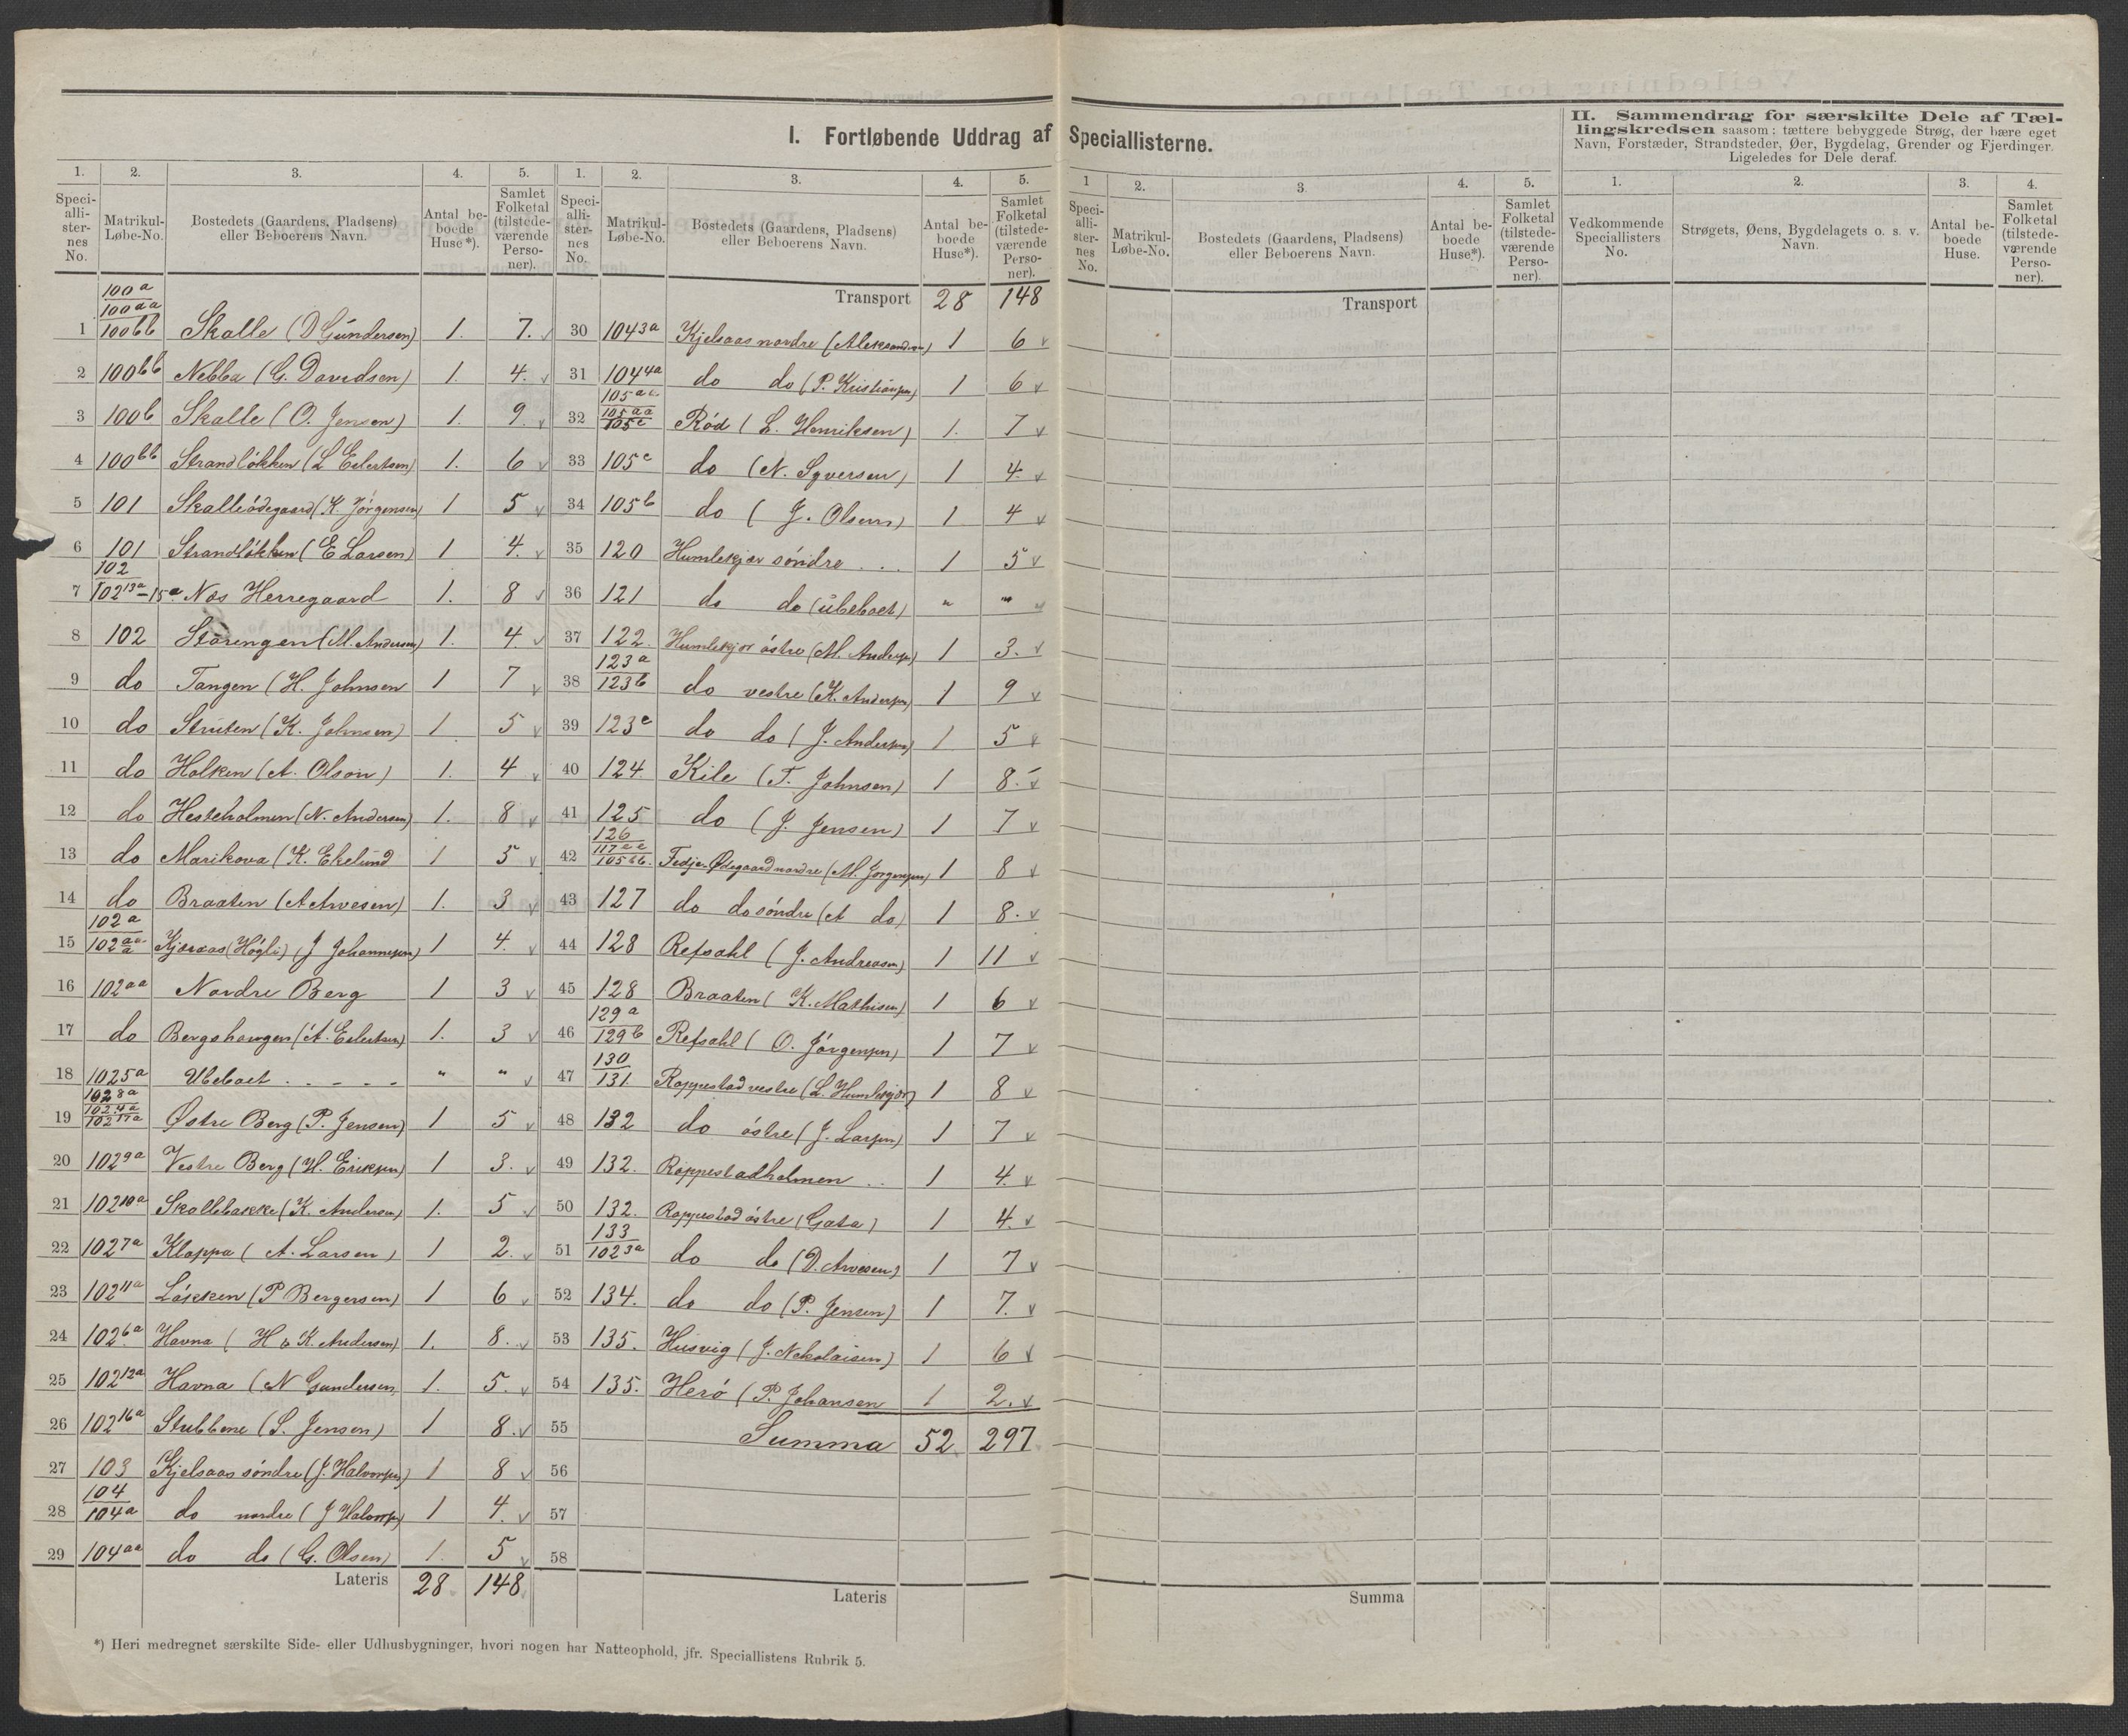 I. Fortløbende Uddrag af Speciallisterne.
II. Sammendrag for særskilte Dele af Tællingskredsen saasom: tættere bebyggede Strøg, der bære eget
Navn, Forstæder, Strandsteder, Øer, Bygdelag, Grender og Fjerdinger.
Ligeledes for Dele deraf.
1. 2. 3. 4. 5.
Speciallisternes No. Matrikul-Løbe-No. Bostedets (Gaardens, Pladsens) eller Beboerens Navn. Antal beboede Huse*). Samlet Folketal (tilstedeværende Personer).
100a
100aa
1 100bb Skalle (D Gündersen) 1. 7.
2 100bb Nebba (G. Davidsen) 1. 4.
3 100b Skalle (O. Jensen) 1. 9.
4 100bb Strandløkken (L Eilertsen) 1. 6
5 101 Skalleødegaard (K. Jørgensen) 1 5
6 101 Strandløkken (E Larsen) 1 4.
102
7 102 13a-15a. Næs Herregaard 1. 8
8 102 Storengen (M. Andersen) 1. 4.
9 do Tangen (H. Johnsen 1 7
10 do Struten (K. Johnsen) 1 5
11 do Holken (A. Olson) 1. 4
12 do Hesteholmen (N. Andersen) 1. 8
13 do Marikova (K. Ekelünd 1 5
14 do Braaten (A Arvesen) 1. 3
102a
15 102aa Kjæraas (Høgli) (J Johannesen) 1 4.
16 102aa Nordre Berg 1 3
17 do Bergshaugen (A. Eilertsen) 1. 3
18 102 5a Ubeboet . . - - - " "
102 8a
102 4a
19 102 17a Østre Berg (P. Jensen) 1 5
20 102 9a Vestre Berg (H. Eriksen) 1 3.
21 102 10a Skallebakke (K. Andersen) 1. 5
22 102 7a Kloppa (A. Larsen) 1 2.
23 102 11a Løkken (P Bergersen) 1 6
24 102 6a Havna (H & K. Andersen) 1. 8.
25 102 12a Havna (N Gundersen 1. 5.
26 102 16a Stubbene (S. Jensen) 1 8.
27 103 Kjelsaas søndre (J. Halvorsen) 1 8
104
28 104a do nordre (J Halvorsen) 1 4.
29 104aa do do (G. Olsen) 1. 5
Lateris 28 148
*) Heri medregnet særskilte Side- eller Udhusbygninger, hvori nogen har Natteophold, jfr. Speciallistens Rubrik 5.
1. 2. 3. 4. 5.
Speciallisternes No. Matrikul-Løbe-No. Bostedets (Gaardens, Pladsens) eller Beboerens Navn. Antal beboede Huse*). Samlet Folketal (tilstedeværende Personer).
Transport 28 148
30 104 3a Kjelsaas nordre (Aleksandersen) 1 6
31 104 4a do do (P. Kristiansen) 1 6
105a
105aa
32 105c Rød (L. Henriksen) 1. 7
33 105c do (N. Syversen) 1 4.
34 105b do (J. Olsen) 1 4
35 120 Humlekjær søndre . . . 1 5
36 121 do do (übeboet) " "
37 122. Humlekjær østre (M. Andersen) 1 3.
123a
38 123b do vestre (K. Andersen) 1 9
39 123c do do (J. Andersen) 1 5
40 124. Kile (T. Johnsen) 1 8.
41 125 do (J. Jensen) 1 7
126
42 105bb. Ødegaard nordre (M. Jørgensen) 1 8
43 127 do do søndre (A do) 1 8.
44 128 Refsahl (J. Andreasen) 1 11
45 128 Braaten (K. Mathisen) 1 6
129a
46 129b Refsahl (O. Jørgensen) 1 7
130
47 131. Rappestad vestre (L. Humlekjær) 1 8
48 132 do østre (J. Larsen) 1 7
49 132. Rappestadholmen . . 1 4.
50 132. Rappestad østre (Gata) 1 4.
133
51 102 3a do do (D. Arvesen) 1 7
52 134. do do (P. Jensen) 1 7.
53 135. Husvig (J. Nikolaisen) 1 6
54 135. Herø (P. Johansen 1 2.
55 Summa 52 297
56
57
58
Lateris
1 2. 3 4. 5.
Speciallisternes No. Matrikul-Løbe-No. Bostedets (Gaardens, Pladsens) eller Beboerens Navn. Antal beboede Huse*). Samlet Folketal (tilstedeværende Personer).
Transport
Summa
1. 2. 3. 4.
Vedkommende Speciallisters No. Strøgets, Øens, Bygdelagets o. s. v. Navn. Antal beboede Huse. Samlet Folketal (tilstedeværende Personer).